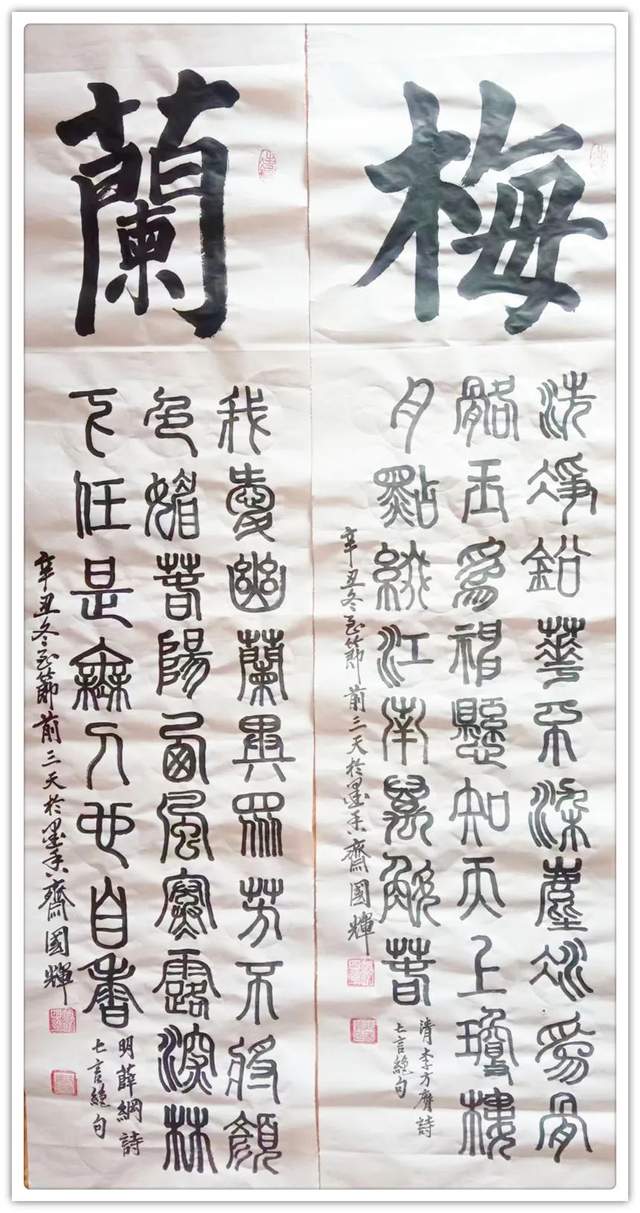 梅
洗淨鉛華不染塵冰為骨
骼玉為神懸知天上瓊樓
月點綴江南萬斛春
清李方膺詩
七言絕句
辛丑冬至節前三天於墨香齋國輝
蘭
我愛幽蘭異眾芳不將顏
色媚春陽西風寒露深林
下任是無人也自香
明薛綱詩
七言絕句
辛丑冬至節前三天於墨香齋國輝